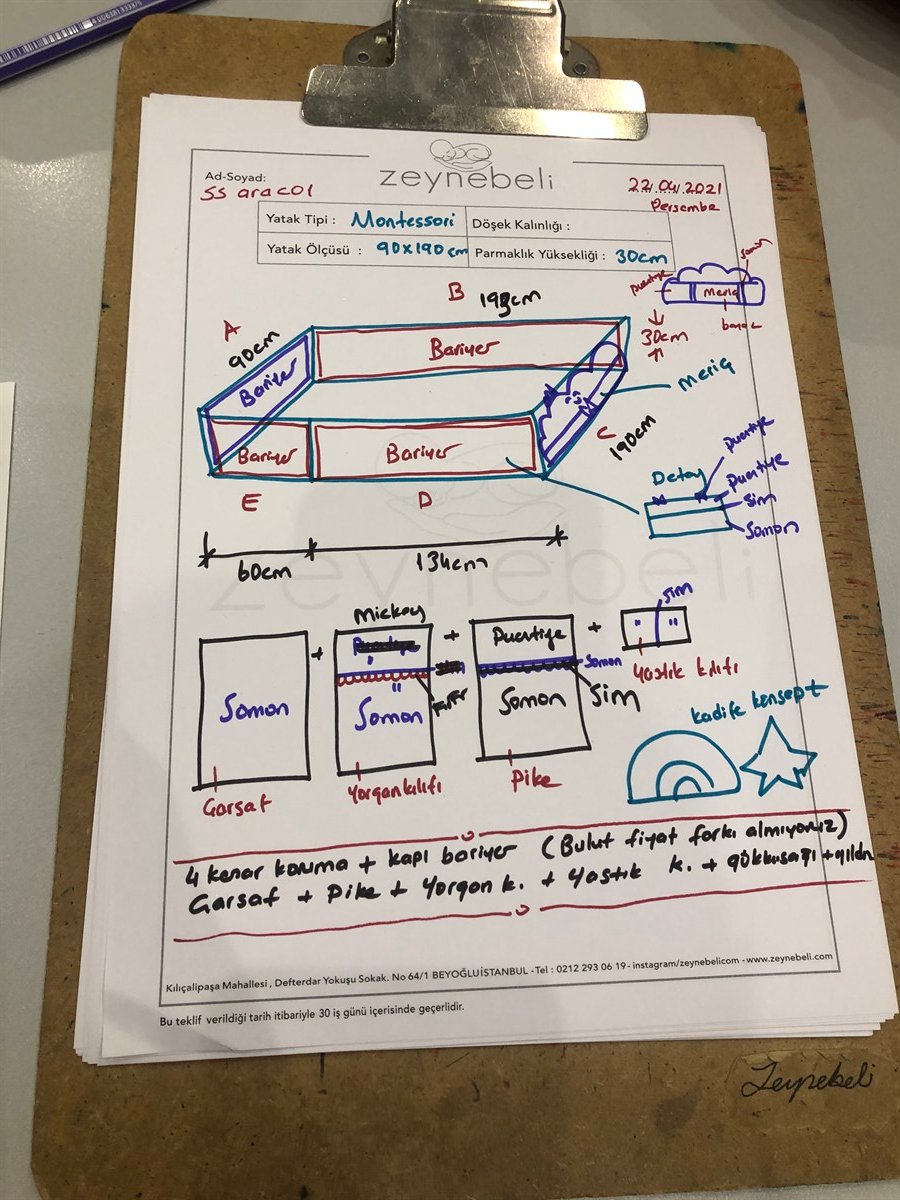 zeynebeli
Ad-Soyad:
SS aracol
22.04.2021
Persembe
Yatak Tipi : Montessori
Döşek Kalınlığı :
Yatak Ölçüsü : 90x190 cm
Parmaklık Yüksekliği : 30cm
somon
puantiye
Meriq
30cm
B
193cm
A
90cm
Bariyer
Bariyer
Meriq
C
190cm
Bariyer
Bariyer
E
D
Detay
puantiye
puantiye
sim
Somon
60cm
134cm
zeynebeli
Somon
Garsaf
+
Mickey
Fırfır
Somon
Yorgan kılıfı
+
Puantiye
Somon
Sim
Somon
Pike
+
sim
" "
Yastık kılıfı
kadife konsept
4 kenar koruma + kapı bariyer (Bulut fiyat farkı almıyoruz)
Garsaf + Pike + Yorgan k. + Yastık k. + gökkuşağı + yıldız
Kılıçalipaşa Mahallesi , Defterdar Yokuşu Sokak. No 64/1 BEYOĞLUİSTANBUL -Tel : 0212 293 06 19 - instagram/zeynebelicom - www.zeynebeli.com
Bu teklif verildiği tarih itibariyle 30 iş günü içerisinde geçerlidir.
Zeynebeli